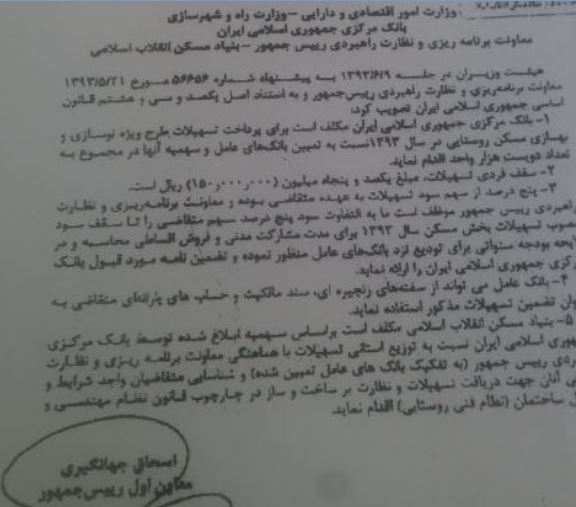 وزارت امور اقتصادی و دارایی – وزارت راه و شهرسازی
بانک مرکزی جمهوری اسلامی ایران
معاونت برنامه ریزی و نظارت راهبردی رییس جمهور – بنیاد مسکن انقلاب اسلامی
هیئت وزیران در جلسه ۱۳۹۳/۶/۹ به پیشنهاد شماره ۵۶۶۵۶ مورخ ۱۳۹۳/۵/۲۱
معاونت برنامه‌ریزی و نظارت راهبردی رییس‌جمهور و به استناد اصل یکصد و سی و هشتم قانون
اساسی جمهوری اسلامی ایران تصویب کرد:
۱- بانک مرکزی جمهوری اسلامی ایران مکلف است برای پرداخت تسهیلات طرح ویژه نوسازی و
بهسازی مسکن روستایی در سال ۱۳۹۳ نسبت به تعیین بانک‌های عامل و سهمیه آنها در مجموع به
تعداد دویست هزار واحد اقدام نماید.
۲- سقف فردی تسهیلات، مبلغ یکصد و پنجاه میلیون (۱۵۰٫۰۰۰٫۰۰۰) ریال است.
۳- پنج درصد از سهم سود تسهیلات به عهده متقاضی بوده و معاونت برنامه‌ریزی و نظارت
راهبردی رییس جمهور موظف است ما به التفاوت سود پنج درصد سهم متقاضی را تا سقف سود
مصوب تسهیلات بخش مسکن سال ۱۳۹۳ برای مدت مشارکت مدنی و فروش اقساطی محاسبه و در
لایحه بودجه سنواتی برای توزیع نزد بانک‌های عامل منظور نموده و تضمین نامه مورد قبول بانک
مرکزی جمهوری اسلامی ایران را ارائه نماید.
۴- بانک عامل می تواند از سفته‌های زنجیره ای، سند مالکیت و حساب های یارانه‌ای متقاضی به
وان تضمین تسهیلات مذکور استفاده نماید.
۵- بنیاد مسکن انقلاب اسلامی مکلف است براساس سهمیه ابلاغ شده توسط بانک مرکزی
جمهوری اسلامی ایران نسبت به توزیع استانی تسهیلات با هماهنگی معاونت برنامه ریزی و نظارت
بردی رییس جمهور (به تفکیک بانک های عامل تعیین شده) و شناسایی متقاضیان واجد شرایط و
فی آنان جهت دریافت تسهیلات و نظارت بر ساخت و ساز در چارچوب قانون نظام مهندسی و
ل ساختمان (نظام فنی روستایی) اقدام نماید.
اسحاق جهانگیری
معاون اول رییس‌جمهور